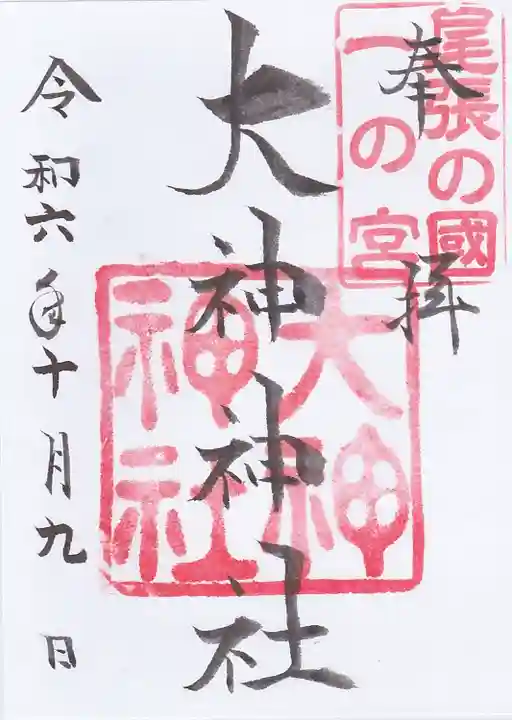 奉拝
尾張の國
一の宮
大神神社
大神
神社
令和六年十月九日